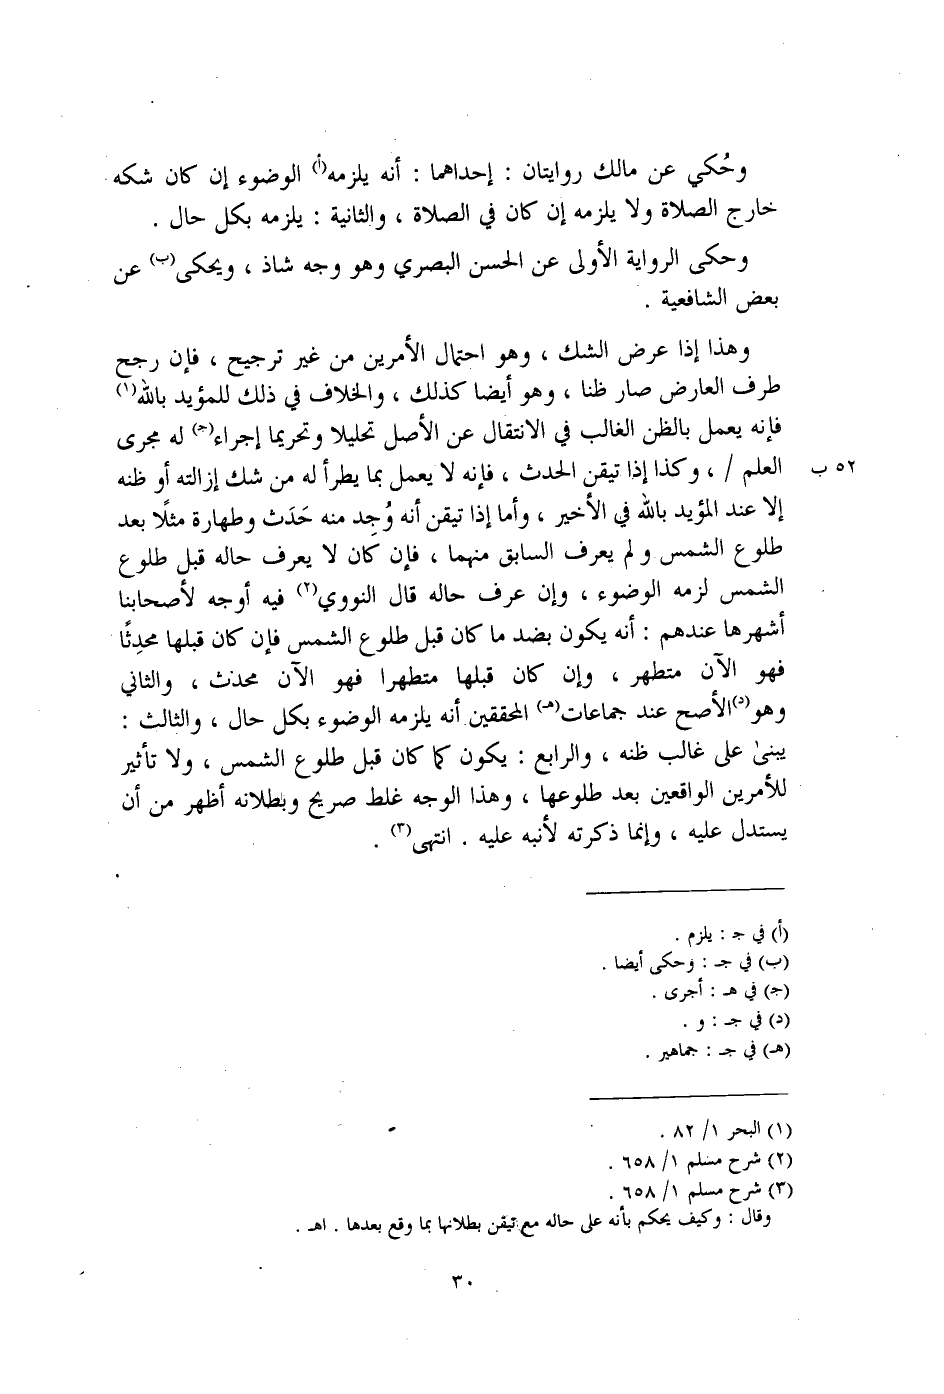 وحُكي عن مالك روايتان : إحداهما : أنه يلزمه(أ) الوضوء إن كان شكه
خارج الصلاة ولا يلزمه إن كان في الصلاة ، والثانية : يلزمه بكل حال .
وحكى الرواية الأولى عن الحسن البصري وهو وجه شاذ ، ويحكى(ب) عن
بعض الشافعية .
وهذا إذا عرض الشك ، وهو احتمال الأمرين من غير ترجيح ، فإن رجح
طرف العارض صار ظنا ، وهو أيضا كذلك ، والخلاف في ذلك للمؤيد بالله(١)
فإنه يعمل بالظن الغالب في الانتقال عن الأصل تحليلا وتحريما إجراء(ج) له مجرى
العلم / ، وكذا إذا تيقن الحدث ، فإنه لا يعمل بما يطرأ له من شك إزالته أو ظنه ٥٢ ب
إلا عند المؤيد بالله في الأخير ، وأما إذا تيقن أنه وُجِد منه حَدَث وطهارة مثلًا بعد
طلوع الشمس ولم يعرف السابق منهما ، فإن كان لا يعرف حاله قبل طلوع
الشمس لزمه الوضوء ، وإن عرف حاله قال النووي(٢) فيه أوجه لأصحابنا
أشهرها عندهم : أنه يكون بضد ما كان قبل طلوع الشمس فإن كان قبلها محدِثًا
فهو الآن متطهر ، وإن كان قبلها متطهرا فهو الآن محدث ، والثاني
وهو(د)الأصح عند جماعات(هـ) المحققين أنه يلزمه الوضوء بكل حال ، والثالث :
يبنىٰ على غالب ظنه ، والرابع : يكون كما كان قبل طلوع الشمس ، ولا تأثير
للأمرين الواقعين بعد طلوعها ، وهذا الوجه غلط صريح وبطلانه أظهر من أن
يستدل عليه ، وإنما ذكرته لأنبه عليه . انتهى(٣) .
(أ) في جـ : يلزم .
(ب) في جـ : وحكى أيضا .
(ج) في هـ : أجرى .
(د) في جـ : و .
(هـ) في جـ : جماهير .
(١) البحر ١/ ٨٢ .
(٢) شرح مسلم ١/ ٦٥٨ .
(٣) شرح مسلم ١/ ٦٥٨ .
وقال : وكيف يحكم بأنه على حاله مع تيقن بطلانها بما وقع بعدها . اهـ .
٣٠